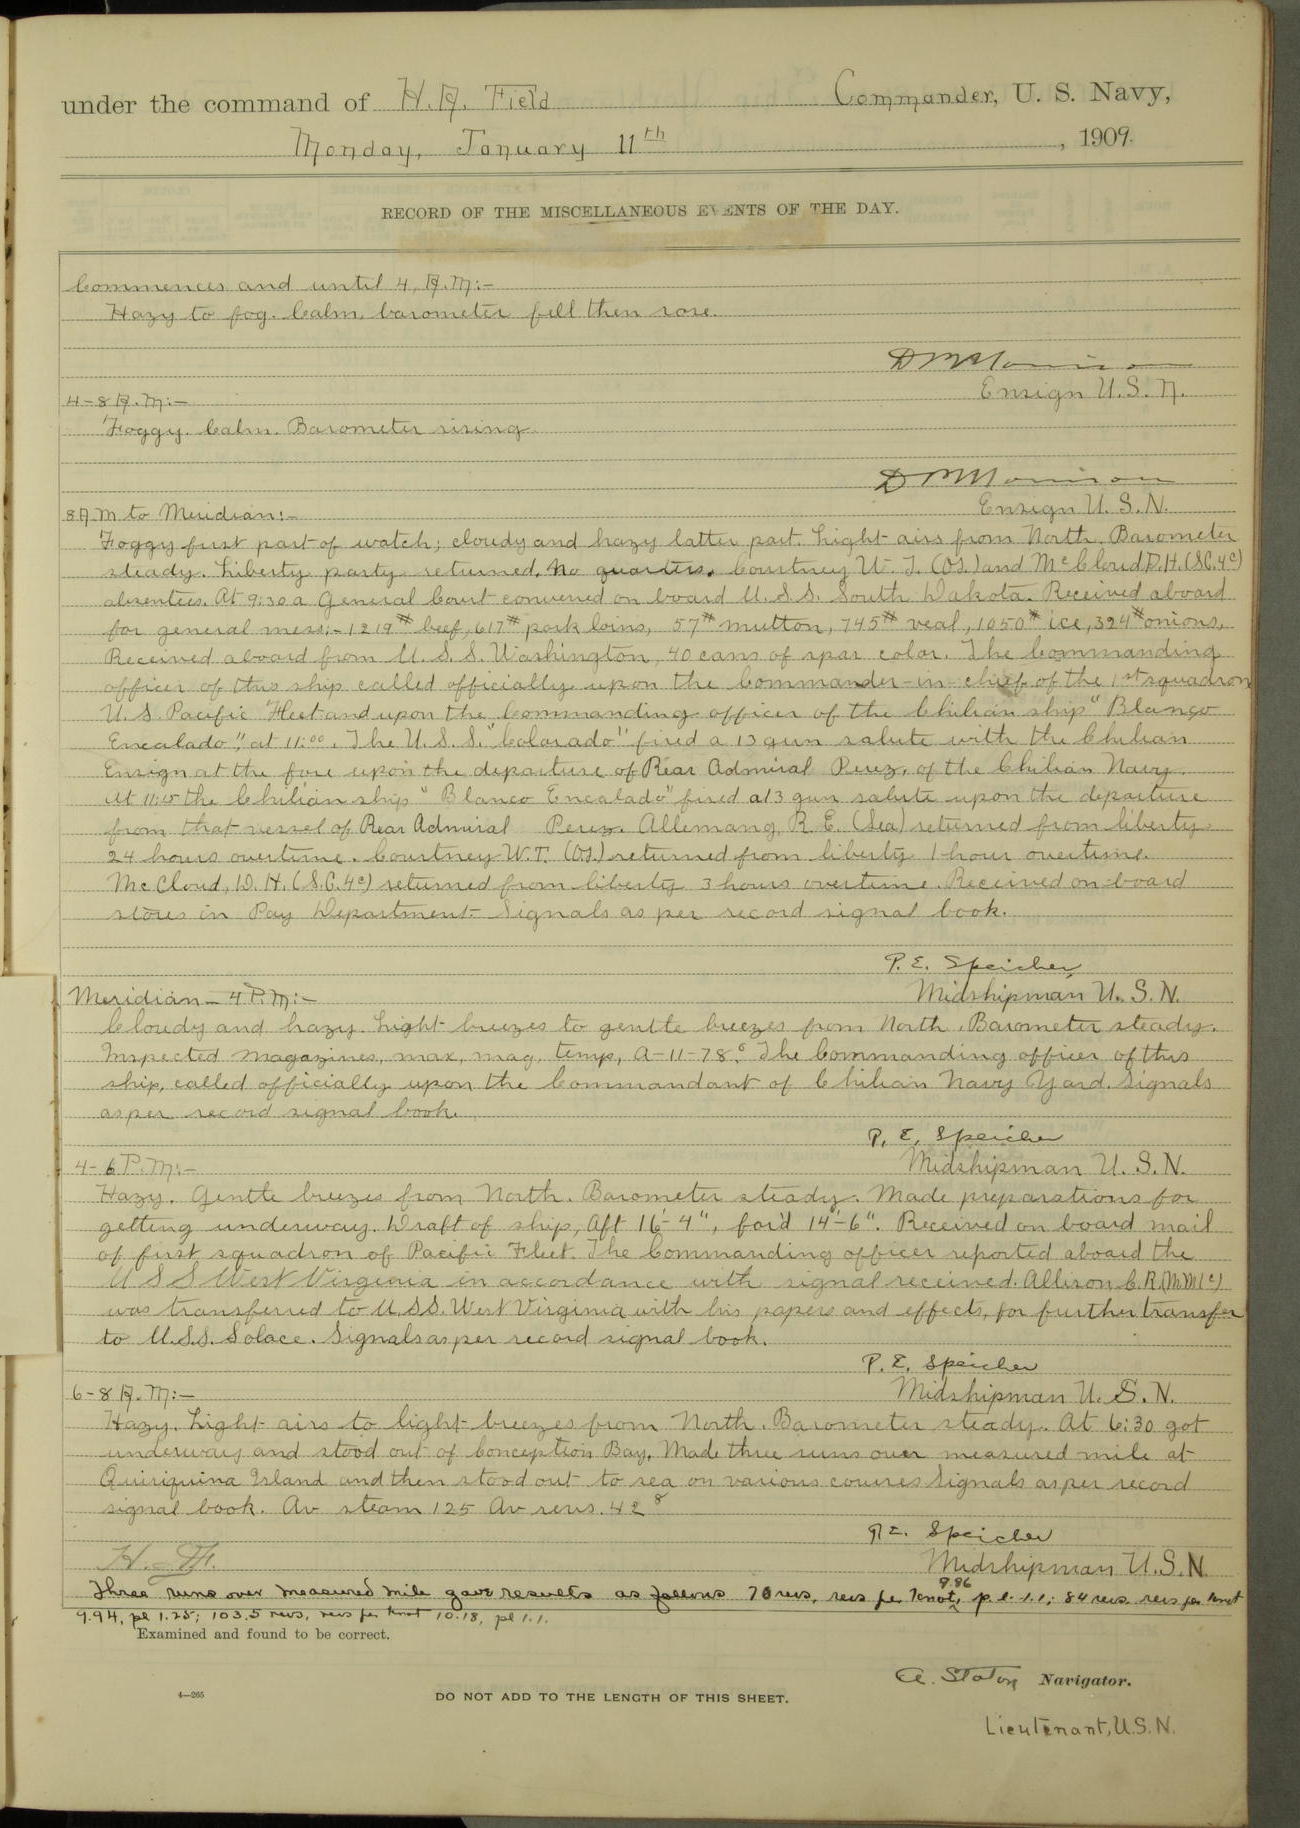 under the command of H. A. Field Commander, U. S. Navy,
Monday, January 11th, 1909.
RECORD OF THE MISCELLANEOUS EVENTS OF THE DAY.
Commences and until 4, A.M:-
Hazy to fog. Calm, barometer fell then rose.
D M Morrison
Ensign U.S.N.
4-8 A.M:-
Foggy. Calm. Barometer rising
D M Morrison
Ensign U.S.N.
8 A.M to Meridian:-
Foggy first part of watch; cloudy and hazy latter part. Light airs from North. Barometer
steady. Liberty party returned. No quarters. Courtney W. T. (OS.) and McCloud D.H. (S.C. 4c)
absentees. At 9:30 a General Court convened on board U.S.S. South Dakota. Received aboard
for general mess:- 1219# beef, 617# pork loins, 57# mutton, 745# veal, 1050# ice, 324# onions,
Received aboard from U.S.S. Washington, 40 cans of spar color. The Commanding
officer of this ship called officially upon the Commander-in-chief of the 1st squadron
U.S. Pacific Fleet and upon the Commanding officer of the Chilian ship "Blanco
Encalado", at 11:00. The U.S.S. "Colorado" fired a 13 gun salute with the Chilian
Ensign at the fore upon the departure of Rear Admiral Perez, of the Chilian Navy.
At 11:15 the Chilian ship "Blanco Encalado" fired a 13 gun salute upon the departure
from that vessel of Rear Admiral Perez. Allemang, R.E. (Sea) returned from liberty
24 hours overtime. Courtney W.T. (OS.) returned from liberty 1 hour overtime.
McCloud, D.H. (S.C. 4c) returned from liberty 3 hours overtime. Received on board
stores in Pay Department. Signals as per record signal book.
P. E. Speicher
Midshipman U.S.N.
Meridian - 4 P.M:-
Cloudy and hazy. Light breezes to gentle breezes from North. Barometer steady.
Inspected magazines, max, mag, temp, A-11-78°. The Commanding officer of this
ship, called officially upon the Commandant of Chilian Navy Yard. Signals
as per record signal book.
P. E. Speicher
Midshipman U.S.N.
4-6 P.M:-
Hazy. Gentle breezes from North. Barometer steady. Made preparations for
getting underway. Draft of ship, aft 16'-4", for'd 14'-6". Received on board mail
of first squadron of Pacific Fleet. The Commanding officer reported aboard the
U S S West Virginia in accordance with signal received. Allison C.R. (M.M.1c)
was transferred to U.S.S. West Virginia with his papers and effects, for further transfer
to U.S.S. Solace. Signals as per record signal book.
P. E. Speicher
Midshipman U.S.N.
6-8 A.M:-
Hazy. Light airs to light breezes from North. Barometer steady. At 6:30 got
underway and stood out of Conception Bay. Made three runs over measured mile at
Quiriquina Island and then stood out to sea on various courses Signals as per record
signal book. Av steam 125 Av revs. 42 8
P. E. Speicher
Midshipman U.S.N.
H. A. F.
Three runs over measured mile gave results as follows 70 revs, revs per knot 9.86, p.l. 1.1; 84 revs. revs per knot
9.94, pl 1.25; 103.5 revs, revs per knot 10.18, pl 1.1.
Examined and found to be correct.
A. Staton Navigator.
4—265
DO NOT ADD TO THE LENGTH OF THIS SHEET.
Lieutenant, U.S.N.